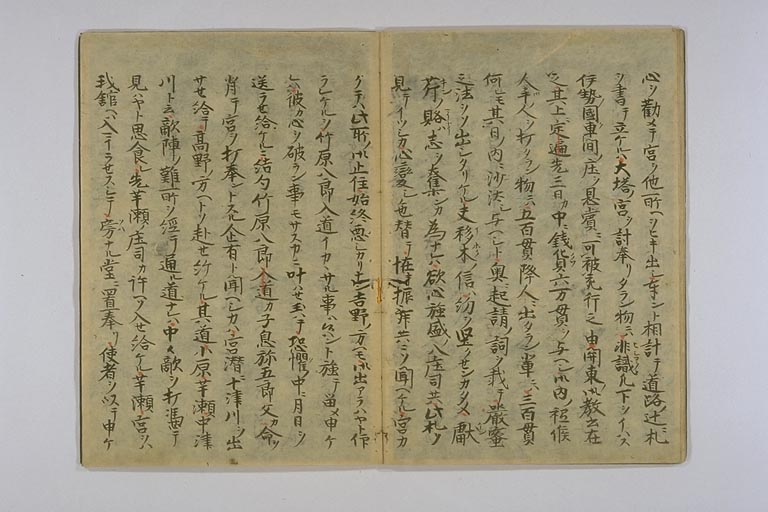 心ヲ勸メテ宮ヲ他所ヘヲヒキ出シ奉ント相計テ道路ノ辻ニ札
ヲ書テ立ケルハ大塔ノ宮ヲ討奉リタラン物ニハ非職凡下ヲイハス
伊勢國車間ノ庄ヲ恩賞ニ可被充行之由関東ノ御教書在
之其上ニ定遍先三日カ中ニ錢貨六万貫ヲ与ヘシ御内祗候
人手ノ人ヲ打タラン物ニハ五百貫降人ニ出タラン輩ニハ三百貫
何レモ其日ノ内ニ沙汰シ与ヘシト奥ニ起請ノ詞ヲ載テ嚴蜜
之法ヲソ出シタリケル夫移木ノ信ハ約ヲ堅セシカタメ獻
芹ノ賂ハ志ヲ奪ンカ為ナレハ欲心強盛ノ八庄司共此札ヲ
見テイツシカ心變シ色替テ恠キ振舞共ニソ聞ヘケル宮カ
クテハ此所ノ御止住始終悪シカリナン吉野ノ方ヘモ御出アラハヤト仰
ラレケルヲ竹原八郎入道イカヽサル事ハ候ハント強テ留メ申ケ
レハ彼カ心ヲ破ラン事モサスカニ叶ハセ玉ハテ恐懼ノ中ニ月日ヲ
送ラセ給ケル結句竹原八郎入道カ子息弥五郎父カ命ヲ
背テ宮ヲ打奉ントスル企有ト聞ヘシカハ宮潜ニ十津川ヲ出
サセ給テ高野ノ方ヘトソ赴セ給ケル其道小原芋瀬中津
川ト云敵陣ノ難所ヲ經テ通ル道ナレハ中々敵ヲ打憑テ
見ハヤト思食レ先芋瀬ノ庄司カ許ヘソ入セ給ケル芋瀬宮ヲハ
我舘ヘ入マイラセスシテ旁ナル堂ニ置奉リ使者ヲ以テ申ケ